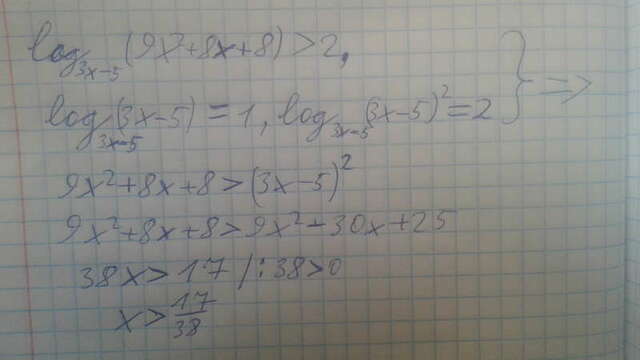 log₃ₓ₋₅(9x²+8x+8)>2,
log₃ₓ₋₅(3x-5)=1, log₃ₓ₋₅(3x-5)²=2 } =>
9x²+8x+8>(3x-5)²
9x²+8x+8>9x²-30x+25
38x>17 /:38>0
x>17/38